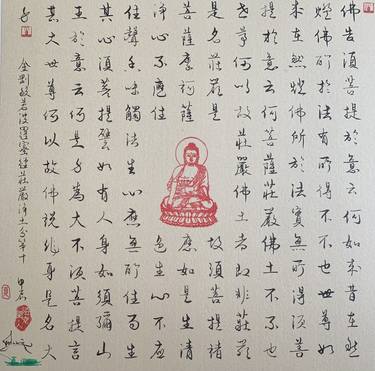 佛告須菩提於意云何如來昔在然
燈佛所於法有所得不不也世尊如
來在然燈佛所於法實無所得須菩
提於意云何菩薩莊嚴佛土不不也
世尊何以故莊嚴佛土者即非莊嚴
是名莊嚴是故須菩提諸
菩薩摩訶薩應如是生清
淨心不應住色生心不應
住聲香味觸法生心應無所住而生
其心須菩提譬如有人身如須彌山
王於意云何是身為大不須菩提言
甚大世尊何以故佛說非身是名大
身
金剛般若波羅蜜經莊嚴淨土分第十